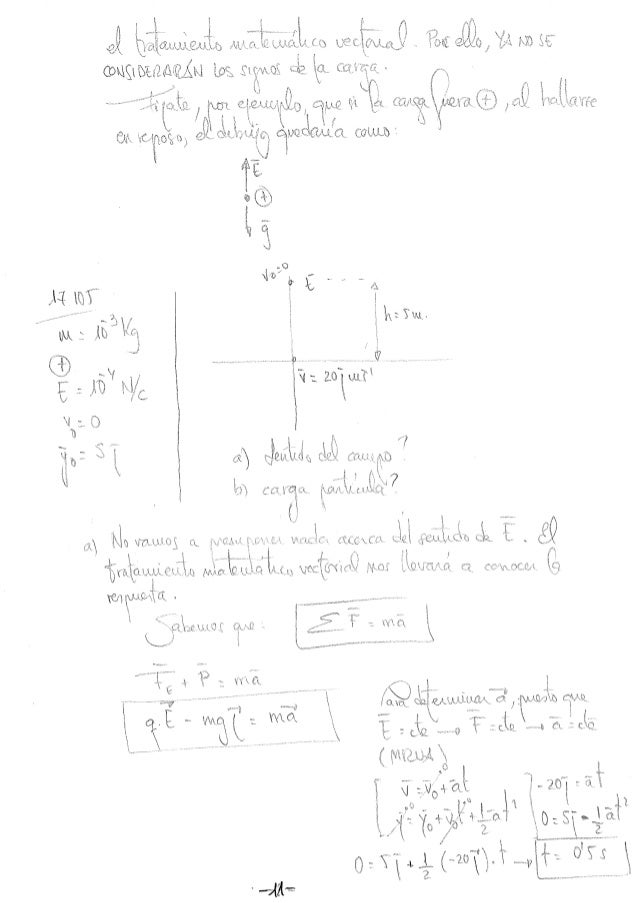 el tratamiento matemático vectorial. Por ello, YA NO SE
CONSIDERARÁN los signos de la carga.
Fíjate, por ejemplo, que si la carga fuera ⊕, al hallarse
en reposo, el dibujo quedaría como:
E̅
⊕
g̅
17 105
m = 10⁻³ Kg
⊕
E = 10⁻⁴ N/C
v₀ = 0
y̅₀ = 5 j̅
v₀=0
E̅
h = 5 m.
v̅ = 20 j̅ ms⁻¹
a) Sentido del campo?
b) carga partícula?
a) No vamos a presuponer nada acerca del sentido de E̅. El
tratamiento matemático vectorial nos llevará a conocer la
respuesta.
Sabemos que: Σ F̅ = m a̅
F̅_E + P̅ = m a̅
q·E⃗ - mg j⃗ = m a⃗
Para determinar a⃗, puesto que
E̅ = cte → F̅ = cte → a̅ = cte
(MRUA)
v̅ = v̅₀ + a̅t
-20 j̅ = a̅t
y̅ = y̅₀ + v̅₀t + ½ a̅t²
0 = 5 j̅ - ½ a̅t²
0 = 5 j̅ + ½ (-20 j̅)·t → t = 0'5 s
-11-